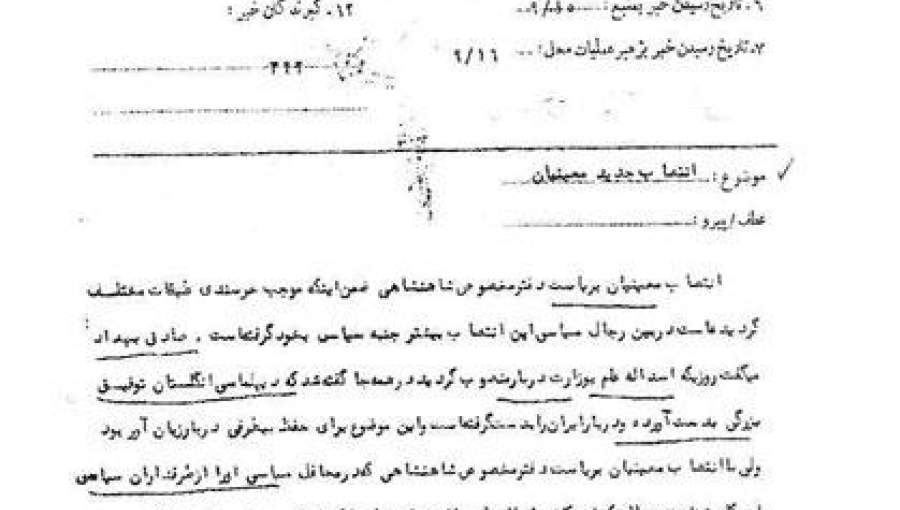 ۶. تاریخ رسیدن خبر بمنبع:
۱۲. گیرندگان خبر:
۷. تاریخ رسیدن خبر برهبر عملیات محل: ۹/۱۶
موضوع: انتصاب جدید معینیان
عطف/پیرو:
انتصاب معینیان بریاست دفتر مخصوص شاهنشاهی ضمن اینکه موجب خرسندی طبقات مختلف
گردیده است در بین رجال سیاسی این انتصاب بیشتر جنبه سیاسی بخود گرفته است. صادق بهداد
میگفت روزیکه اسداله علم بوزارت دربار منصوب گردید در همه جا گفته شد که دیپلماسی انگلستان توفیق
بزرگی بدست آورده و دربار ایران را بدست گرفته است و این موضوع برای حفظ بیطرفی دربار زیان آور بود
ولی با انتصاب معینیان بریاست دفتر مخصوص شاهنشاهی که در محافل سیاسی اورا از طرفداران سیاسی